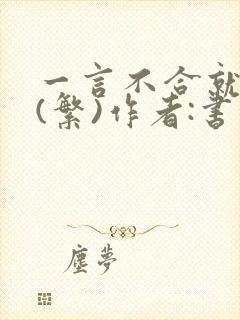 一言不合就
(繁)作者:書
塵夢